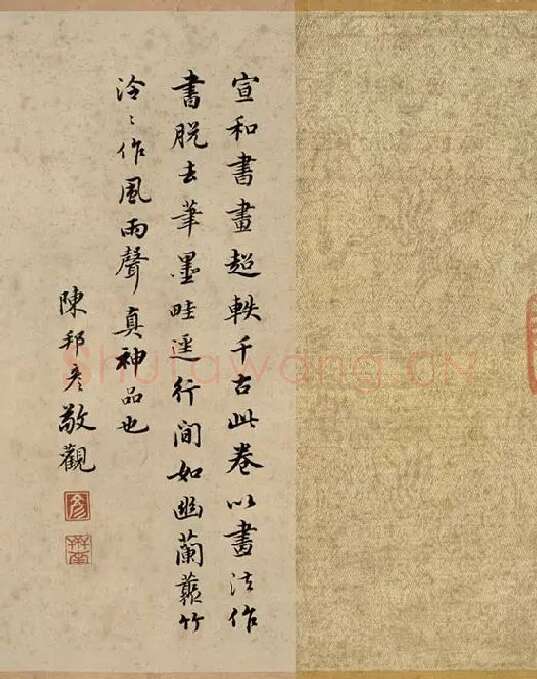 宣和書畫超軼千古此卷以畫法作
書脫去筆墨畦逕行間如幽蘭藂竹
泠〻作風雨聲真神品也
陳邦彥敬觀
shufawang.CN